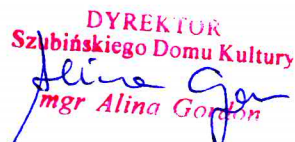 DYREKTOR
Szubińskiego Domu Kultury
Alina Gor
mgr Alina Gordon